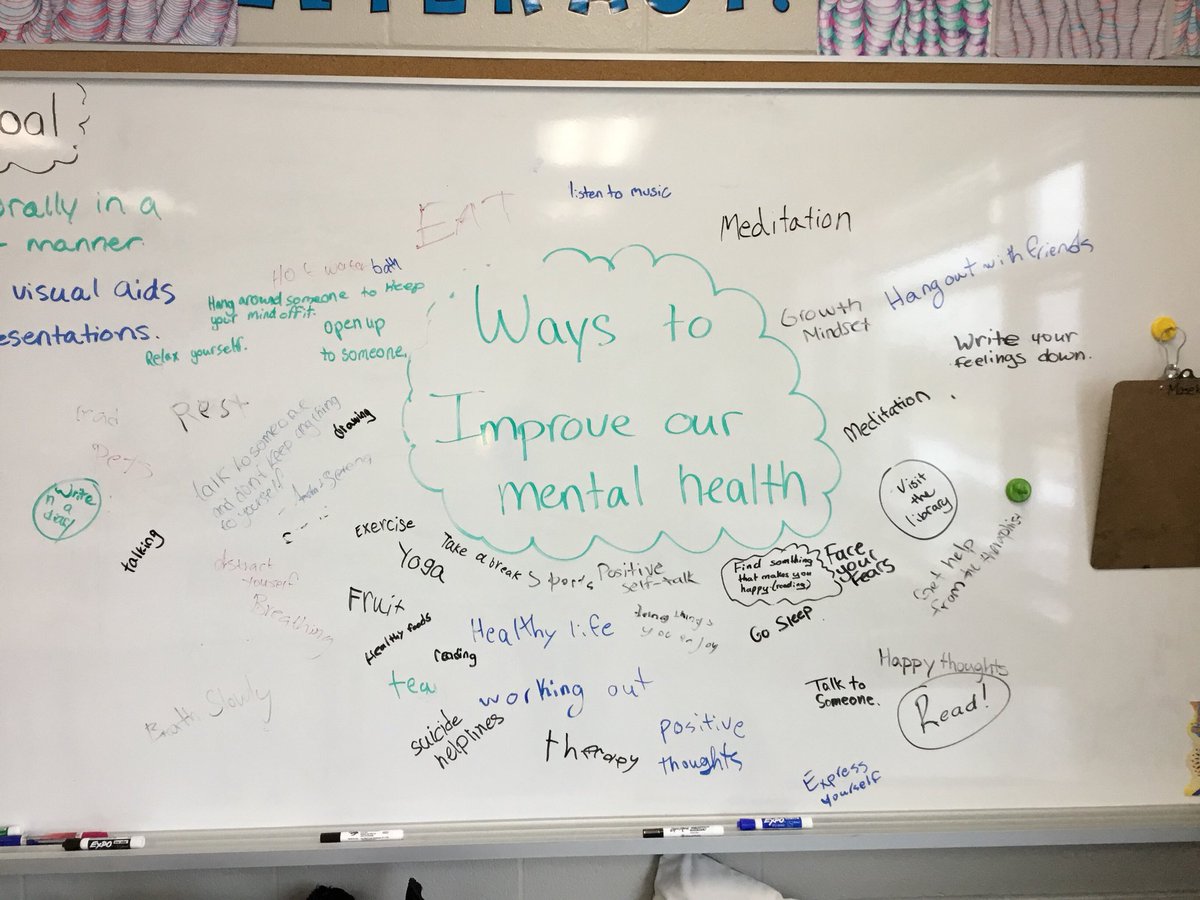 LITERACY!
oal
orally in a
manner
visual aids
esentations.
EAT
listen to music
Meditation
Hot water bath
Hang around someone to keep
your mind off it.
open up
to someone.
Relax yourself.
Ways to
Improve our
mental health
Growth
Mindset
Hang out with friends
Write your
feelings down.
read
Rest
Pets
Talk to someone
and don't keep anything
to yourself
drawing
Write
n a
diary
talking
Meditation
Visit
the
library
exercise
Yoga
Take a break
Sports
Positive
self-talk
Find something
that makes you
happy (reading)
Face
your
fears
Get help
from the
distract
yourself
Breathing
Fruit
Healthy foods
reading
Healthy life
doing things
you enjoy
Go Sleep.
Happy thoughts
Read!
Talk to
Someone.
tea
working out
Breath Slowly
suicide
helplines
therapy
positive
thoughts
Express
yourself
EXPO
EXPO